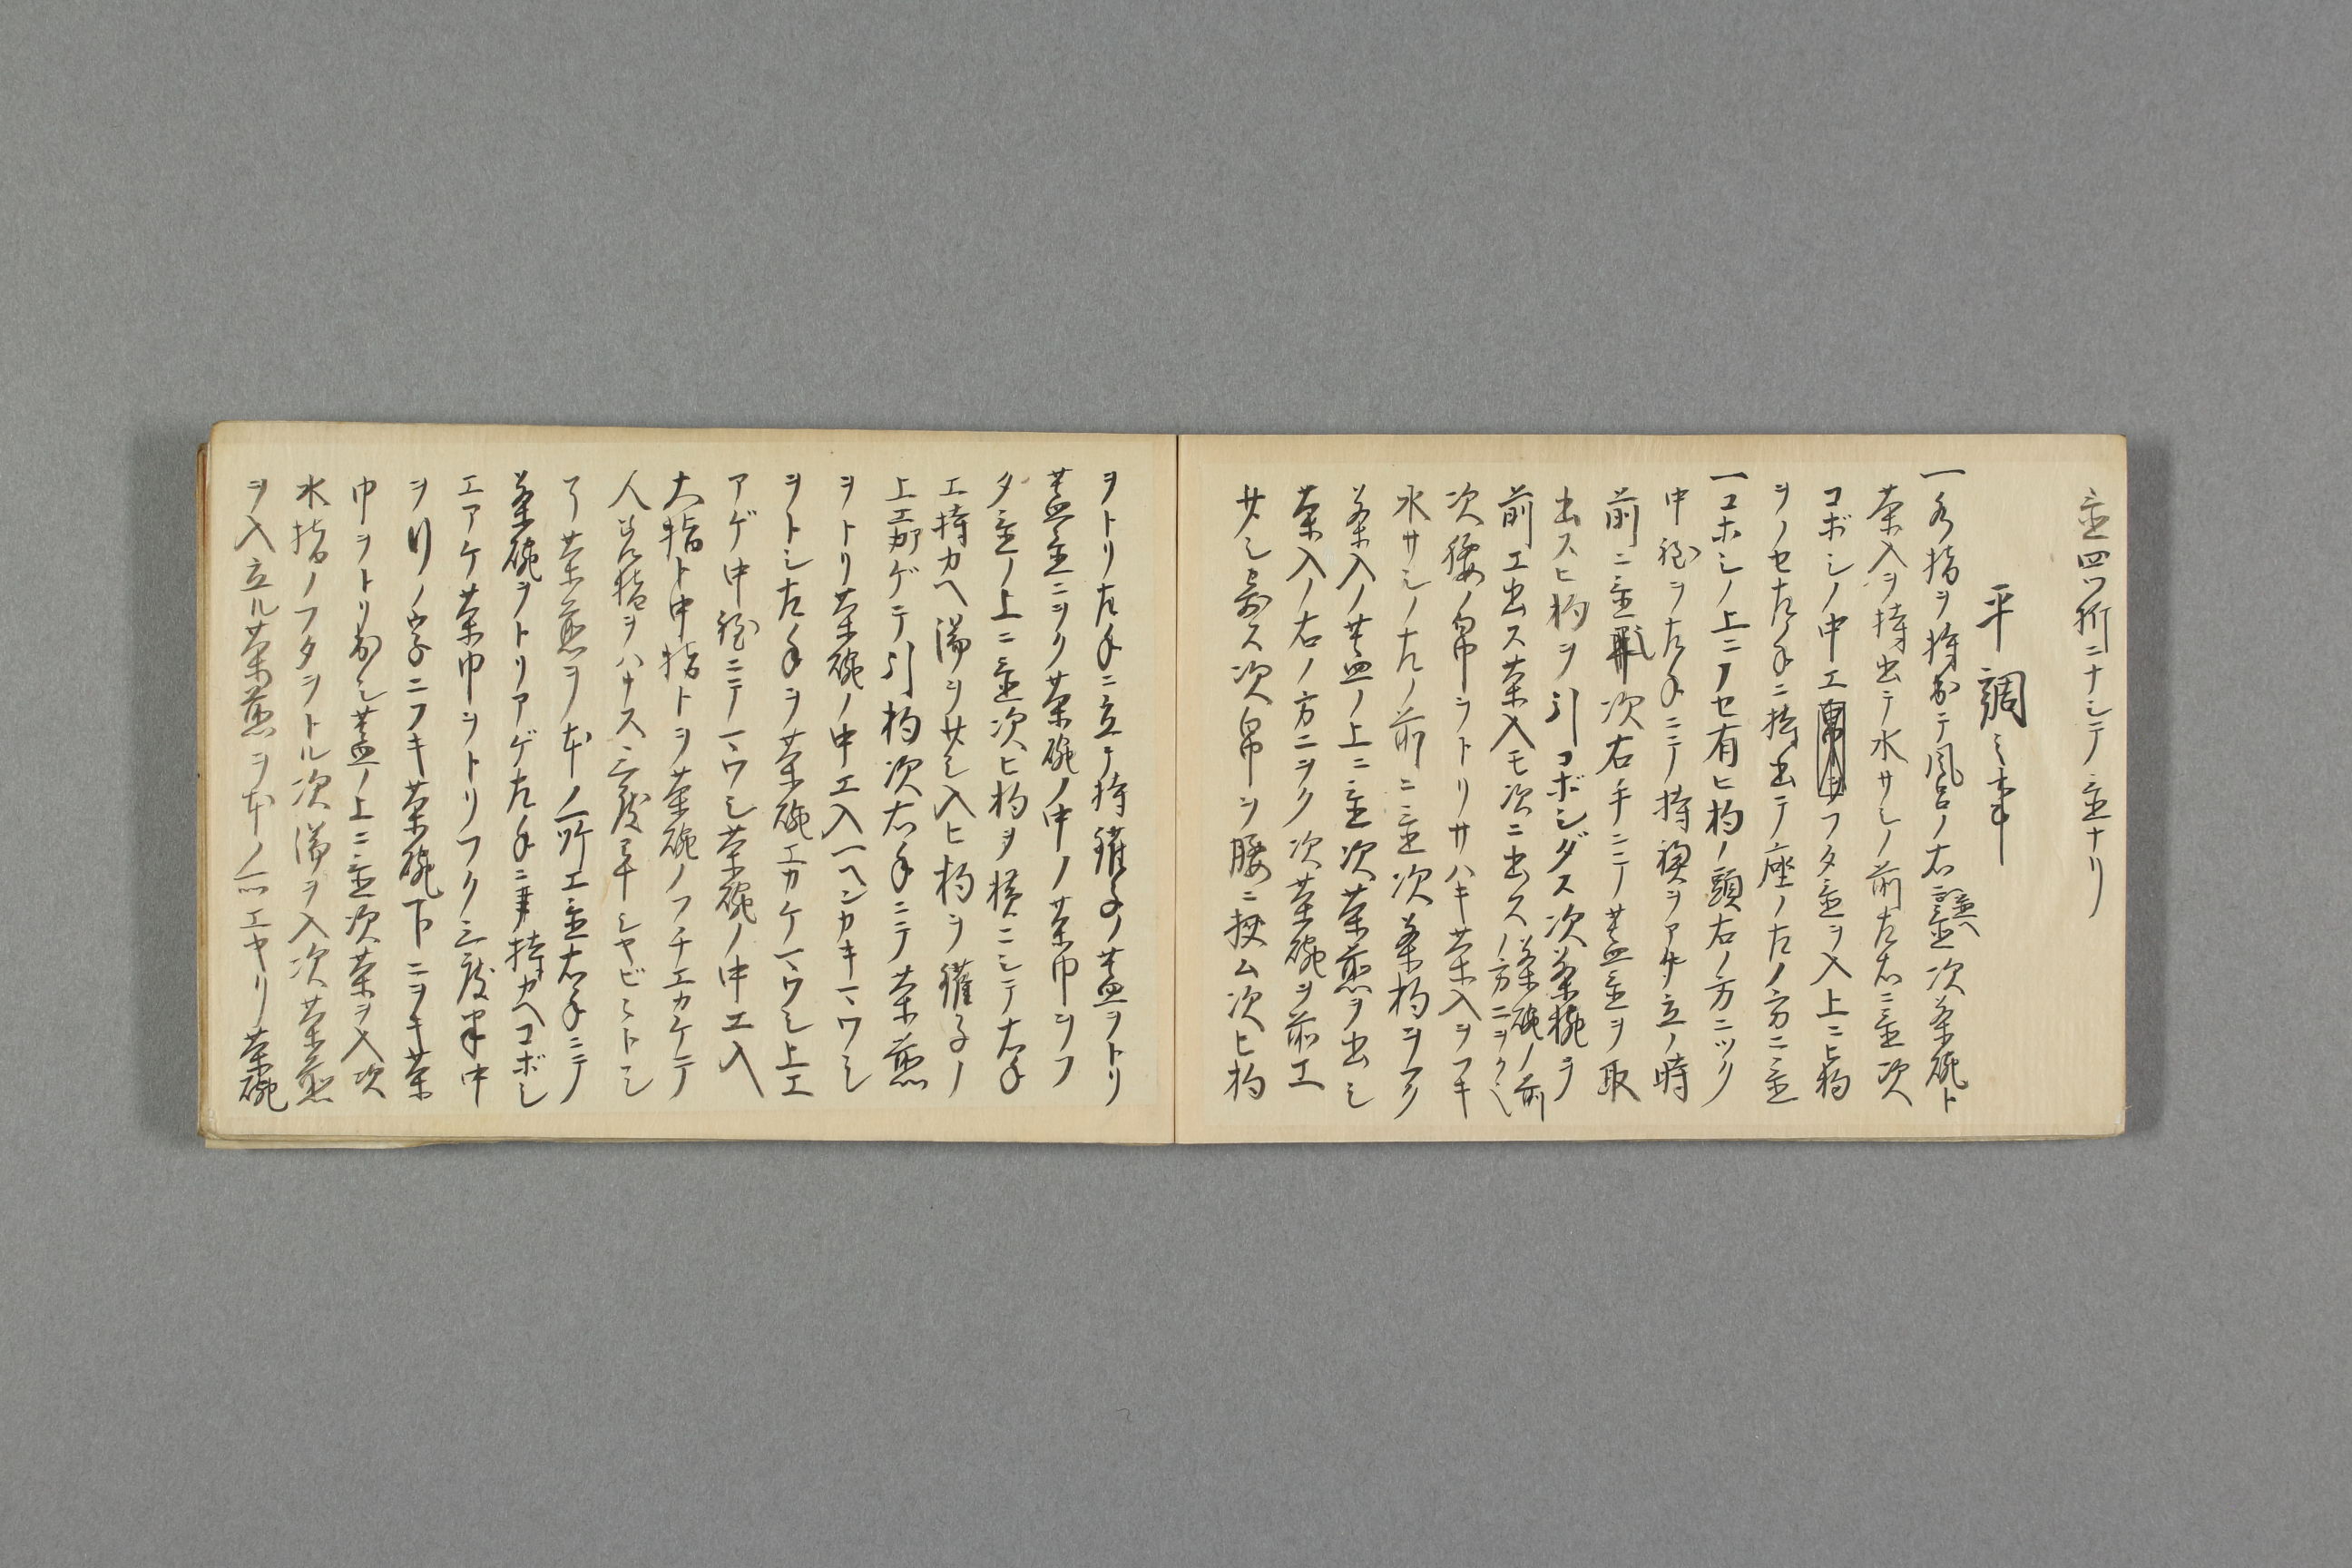 置四ツ折ニナシテ置ナリ
平調之事
一水指ヲ持出テ風呂ノ右置次茶碗ト
茶入ヲ持出テ水サシノ前左右ニ置次
コボシノ中エフタ置ヲ入上ニヒ杓
ヲノセ左手ニ持出テ座ノ左ノ方ニ置
一コホシノ上ニノセ有ヒ杓ノ頭右ノ方ニツク
中程ヲ左手ニテ持襖ヲアケ立ノ時
前ニ置次右手ニテ蓋置ヲ取
出スヒ杓ヲ引コボシダス次茶碗ヲ
前エ出ス茶入モ次ニ出ス茶碗ノ前ノ方ニヲク
次腰ノ帛巾ヲトリサハキ茶入ヲフキ
水サシノ左ノ前ニ置次茶杓ヲフク
茶入ノ蓋ノ上ニ置次茶煎ヲ出シ
茶入ノ右ノ方ニヲク次茶碗ヲ前エ
サシ寄ス次帛ヲ腰ニ挟ム次ヒ杓
ヲトリ左手ニ立テ持鑵子ノ蓋ヲトリ
蓋置ニヲク茶碗ノ中ノ茶巾ヲフ
タ置ノ上ニ置次ヒ杓ヲ横ニシテ右手
エ持カヘ湯ヲサシ入ヒ杓ヲ鑵子ノ
上エアゲテ引杓次右手ニテ茶煎
ヲトリ茶碗ノ中エ入一ヘンカキマワシ
ヲトシ左手ヲ茶碗エカケマワシ上エ
アゲ中程ニテマワシ茶碗ノ中エ入
大指ト中指トヲ茶碗ノフチエカケテ
人差指ヲハナス三度シヤビシトシ
テ茶煎ヲ本ノ所エ置右手ニテ
茶碗ヲトリアゲ左手ニ持カヘコボシ
エアケ茶巾ヲトリフク三度半中
ヲリノ字ニフキ茶碗下ニヲキ茶
巾ヲトリ出シ蓋ノ上ニ置次茶ヲ入次
水指ノフタヲトル次湯ヲ入次茶煎
ヲ入立ル茶煎ヲ本ノ所エヤリ茶碗